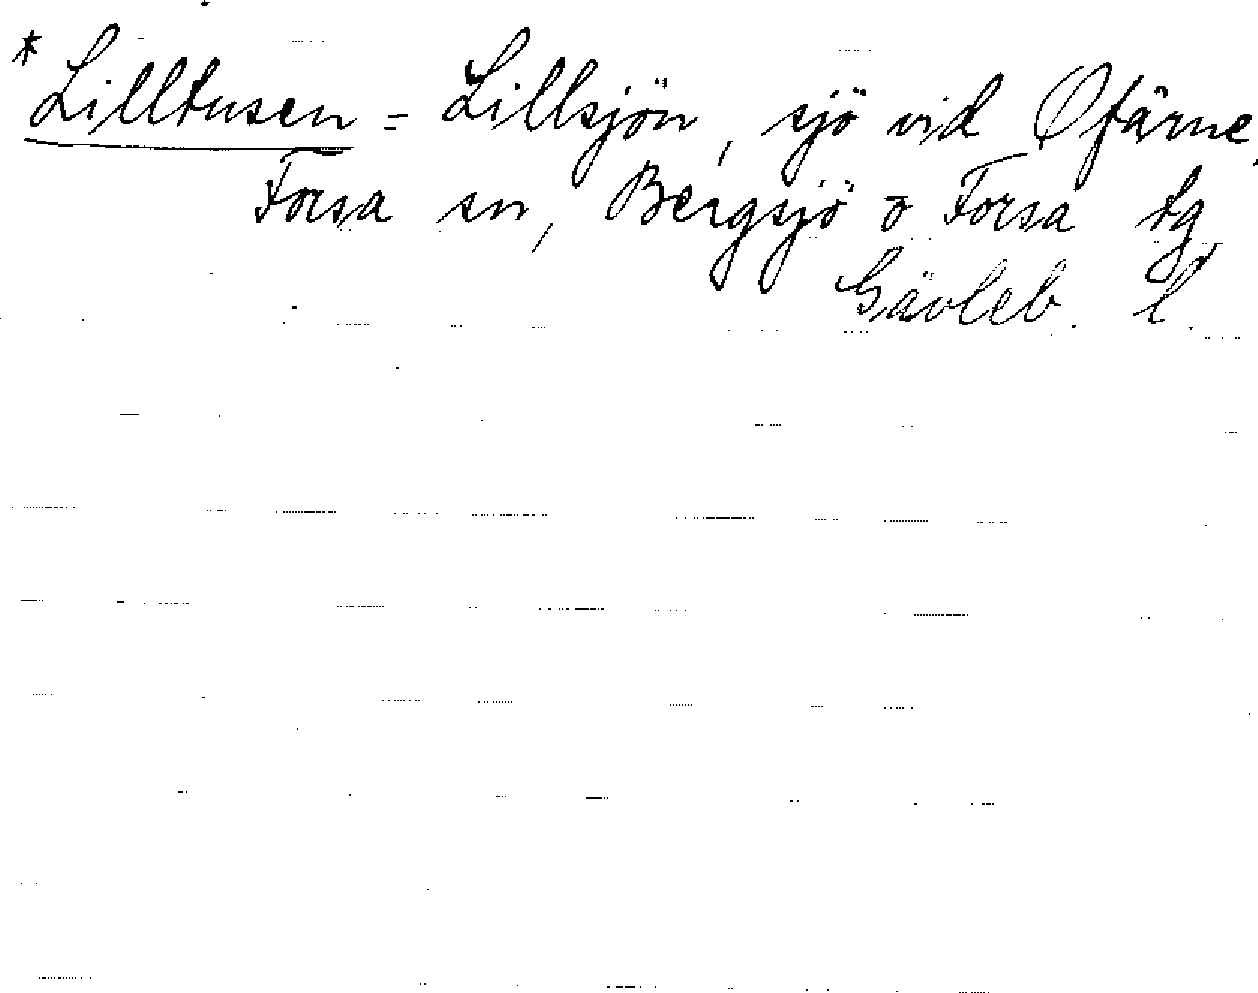 * Lilltusen = Lillsjön, sjö vid Ofärne,
Forsa sn, Bergsjö o Forsa tg,
Gävleb. l.